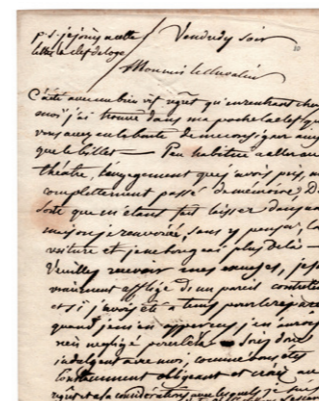 p.s. je joins a cette
lettre la clef de loge
Vendredy soir
Monsieur le chevalier
C'est avec un bien vif regret qu'en rentrant chez
moi j'ai trouvé dans ma poche la clef que
vous avez eu la bonté de me consigner ainsi
que le billet — Peu habitué a aller au
théatre, l'engagement que j'avois pris, m'
complettement passé de mémoire; De
sorte que m'etant fait laisser dans
maison je renvoié, sans y penser, la
voiture et je ne bougeai plus de là —
Veuillez recevoir mes excuses, je suis
vraiment affligé d'un pareil contretems
et si j'avois été a tems pour le reparer
quand je m'en apperçus, j'en aurois
rien negligé pour cela — Soiés donc
indulgent avec moi, comme vous étés
constamment obligeant et croié au
regret et a la consideration avec lesquels je suis